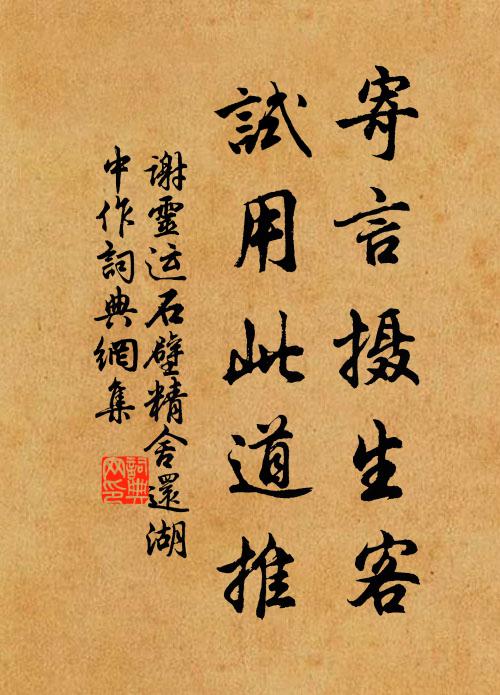 寄言摄生客
試用此道推
谢靈运石壁精舍還湖
中作詞典網集
詞典
网印